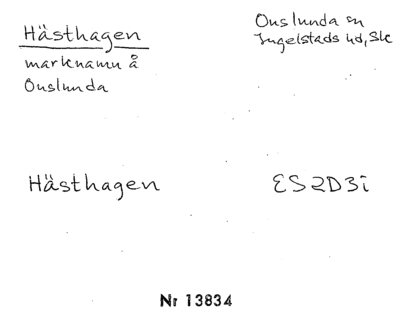 Hästhagen
marknamn å
Onslunda
Onslunda sn
Ingelstads hd, Slc
Hästhagen
ES2D3i
Nr 13834